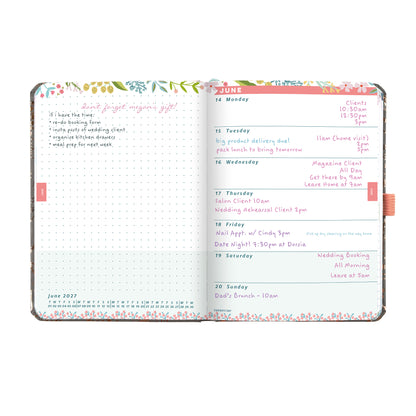 don't forget megan's gift!
if i have the time:
* re-do booking form
* insta posts of wedding client
* organise kitchen drawers
* meal prep for next week
June 2027
JUNE
14 Monday
Clients
10:30am
13:30pm
3pm
15 Tuesday
big product delivery due!
pack lunch to bring tomorrow
11am (home visit)
2pm
3pm
16 Wednesday
Magazine Client
All Day
Get there by 9am
Leave Home at 7am
17 Thursday
Salon Client 10am
Wedding Rehearsal Client 2pm
18 Friday
Nail Appt. w/ Cindy 3pm
Date Night! 7:30pm at Dorsia
19 Saturday
Wedding Booking
All Morning
Leave at 5am
20 Sunday
Dad's Brunch - 10am